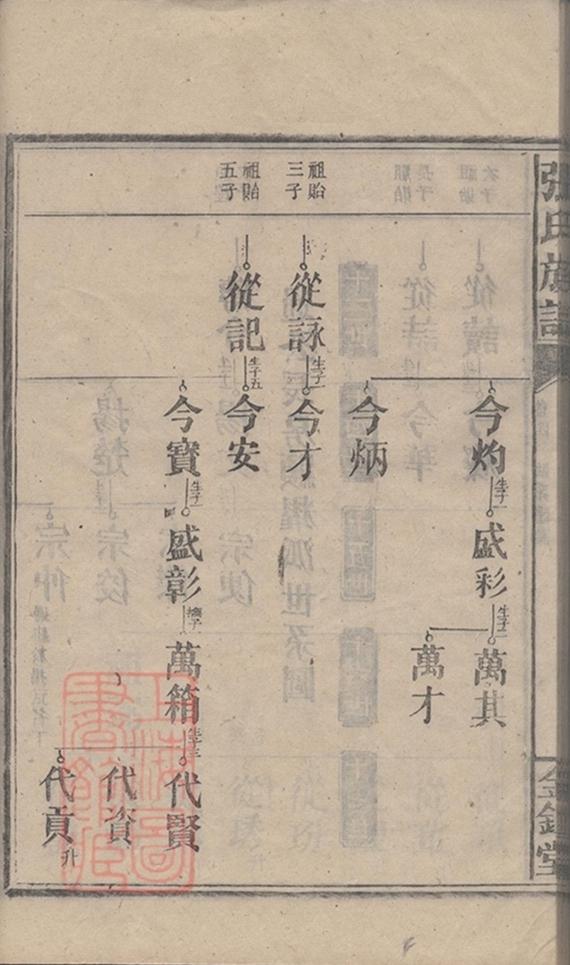 張氏族譜
金鑑堂
今灼
生子一
盛彩
生子二
萬其
萬才
今炳
祖貽
三子
從詠
生子一
今才
祖貽
五子
從記
生子五
今安
今寶
生子一
盛彰
萬箱
生子三
代賢
代資
代貢
升